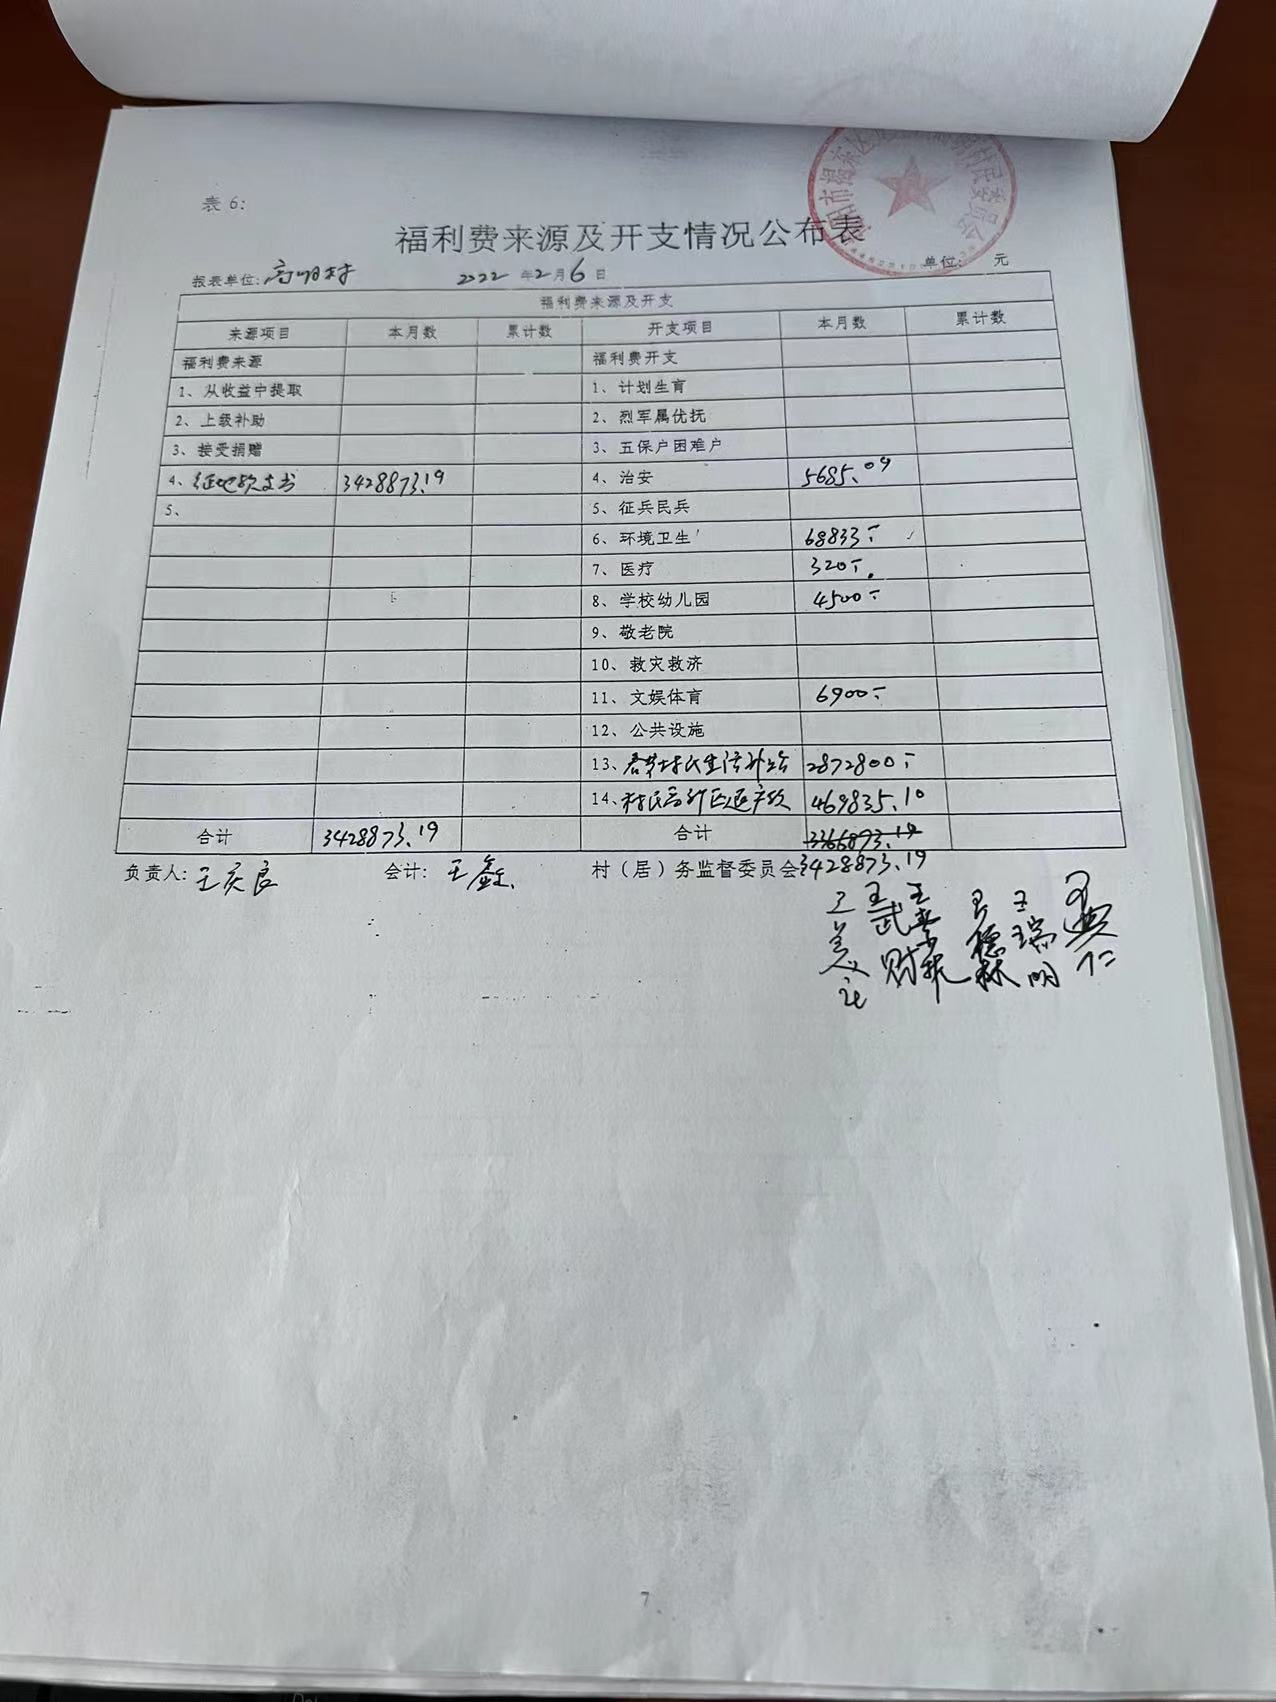 表 6:
福利费来源及开支情况公布表
报表单位: 高明村 2022 年 2 月 6 日 单位: 元
福利费来源及开支
来源项目 本月数 累计数 开支项目 本月数 累计数
福利费来源 福利费开支
1、从收益中提取 1、计划生育
2、上级补助 2、烈军属优抚
3、接受捐赠 3、五保户困难户
4、征地款支出 3428873.19 4、治安 5685.09
5、 5、征兵民兵
6、环境卫生 68833.-
7、医疗 320.-
8、学校幼儿园 4500.-
9、敬老院
10、救灾救济
11、文娱体育 6900.-
12、公共设施
13、春节村民生活补给 2872800.-
14、村民高新区退户款 469835.10
合计 3428873.19 合计 3366873.19
负责人: 王庆良 会计: 王鑫 村（居）务监督委员会 3428873.19
王武财 王德林 王瑞明
7